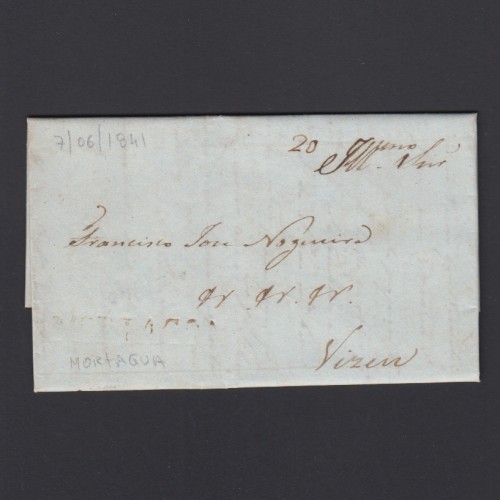 7/06/1841
20
Illmo. Snr
Francisco Jose Nogueira
Vizeu
MORTAGUA